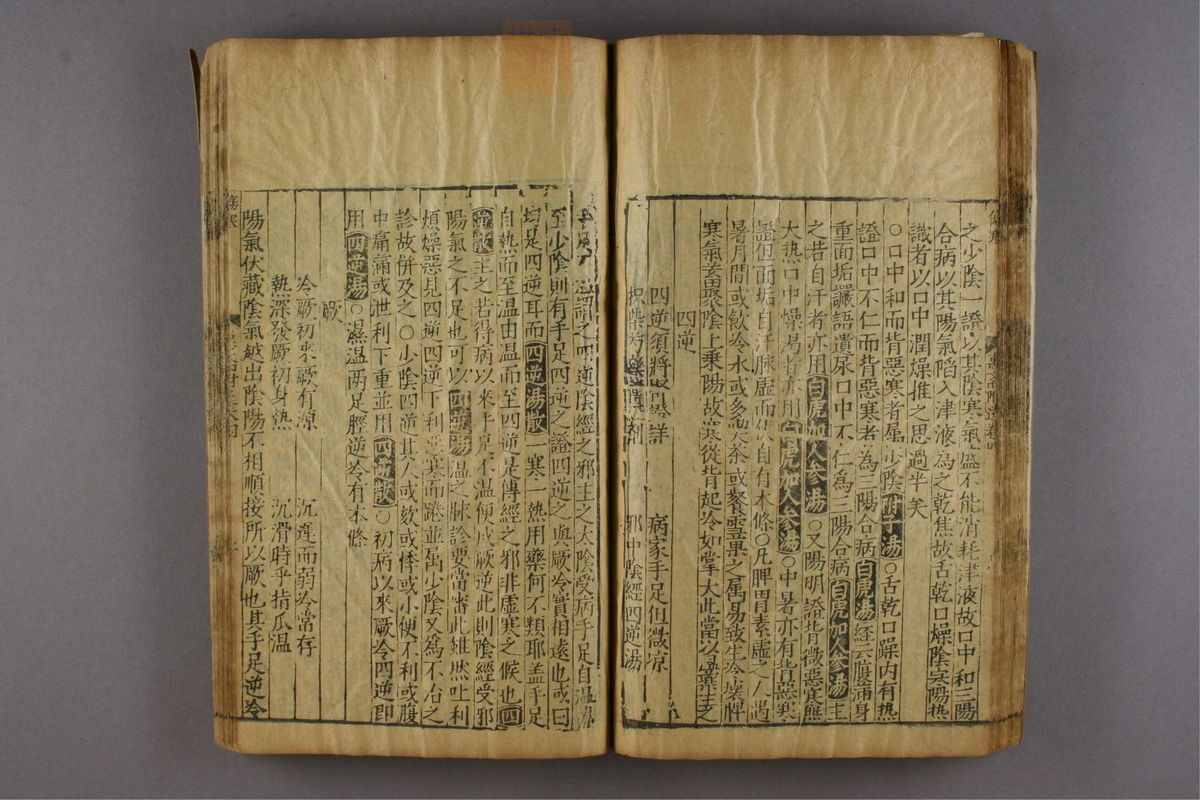 之少陰一證以其陰寒氣盛不能消耗津液故口中和三陽
合病以其陽氣陷入津液為之乾焦故舌乾口燥陰寒陽熱
識者以口中潤燥推之思過半矣
○口中和而背惡寒者屬少陰附子湯○舌乾口躁內有熱
證口中不仁而背惡寒者為三陽合病白虎湯經云腹滿身
重面垢讝語遺尿口中不仁為三陽合病白虎加人參湯主
之若自汗者亦用白虎加人參湯○又陽明證背微惡寒無
大熱口中燥渴者亦用白虎加人參湯○中暑亦有背惡寒
證但面垢自汗脉虛而伏自有本條○凡脾胃素虛之人當
暑月間或飲冷水或多勢茶或餐雪果之屬易致生冷壞脾
寒氣蓄聚陰上乘陽故寒從背起冷如掌大此當以溫藥主之
四逆
四逆須將證詳 病家手足但微凉
枳柴芍藥劑 邪中陰經四逆湯
謂之四逆陰經之邪主之太陰受病手足自溫
至少陰則有手足四逆之證四逆之與厥冷實相遠也或曰
均是四逆耳而四逆湯散一寒一熱用藥何不類耶盖手足
自熱而至温由温而至四逆是傳經之邪非虛寒之候也四
逆散主之若得病以來手足不温便成厥逆此則陰經受邪
陽氣之不足也可以四逆湯温之脉診要當審此雖然吐利
煩燥惡見四逆四逆下利惡寒而踡並屬少陰又為不治之
診故併及之○少陰四逆其人或欬或悸或小便不利或腹
中痛滿或泄利下重並用四逆散○初病以來厥冷四逆即
用四逆湯○濕温两足脛逆冷有本條
厥
冷厥初來厥有源 沉遲而弱冷常存
熱深發厥初身熱 沉滑時乎指瓜温
陽氣伏藏陰氣越出陰陽不相順接所以厥也其手足逆冷